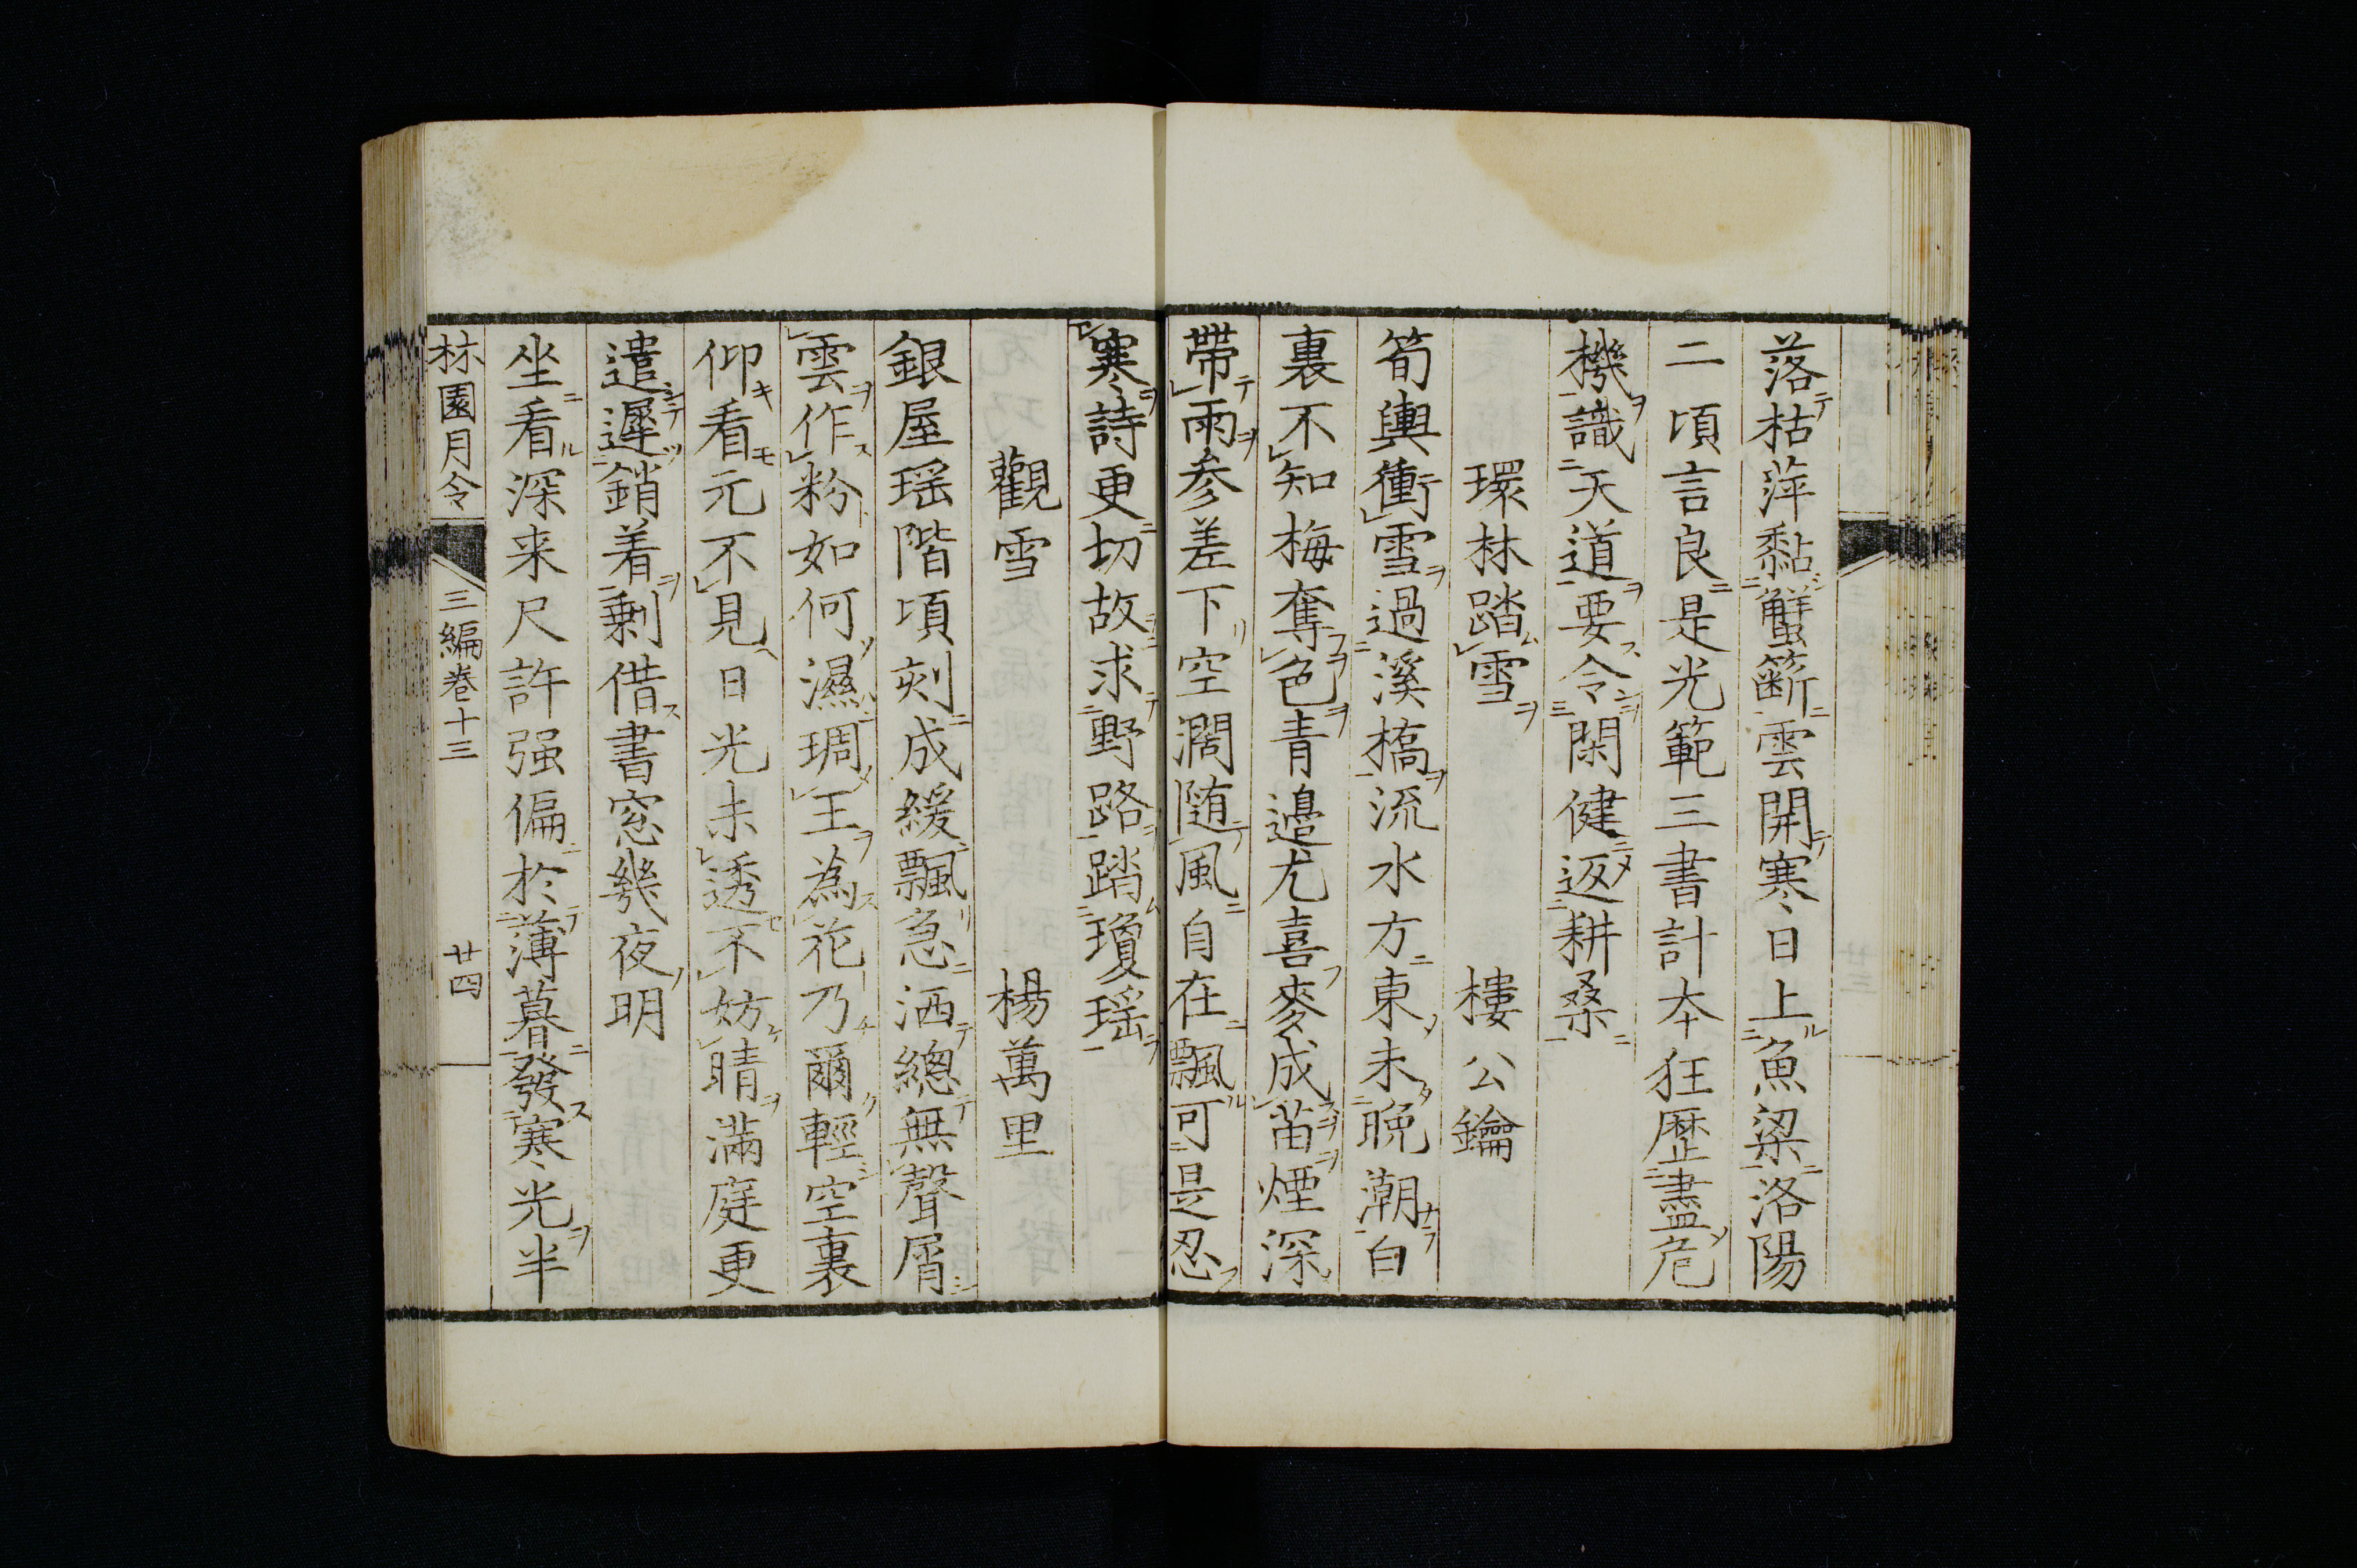 落枯萍黏蟹籪雲開寒日上魚梁洛陽
二頃言良是光範三書計本狂歷盡危
機識天道要令閑健返耕桑
環林踏雪　樓公鑰
筍輿衝雪過溪橋流水方東未晚潮白
裏不知梅奪色青邉尤喜麥成苗煙深
帶雨参差下空濶随風自在飄可是忍
寒詩更切故求野路踏瓊瑶
觀雪　楊萬里
銀屋瑶階頃刻成緩飄急洒總無聲屑
雲作粉如何濕琱玉為花乃爾輕空裏
仰看元不見日光未透不妨晴滿庭更
遣遲銷着剰借書窓幾夜明
坐看深来尺許强偏於薄暮發寒光半
林園月令　三編卷十三　廿四